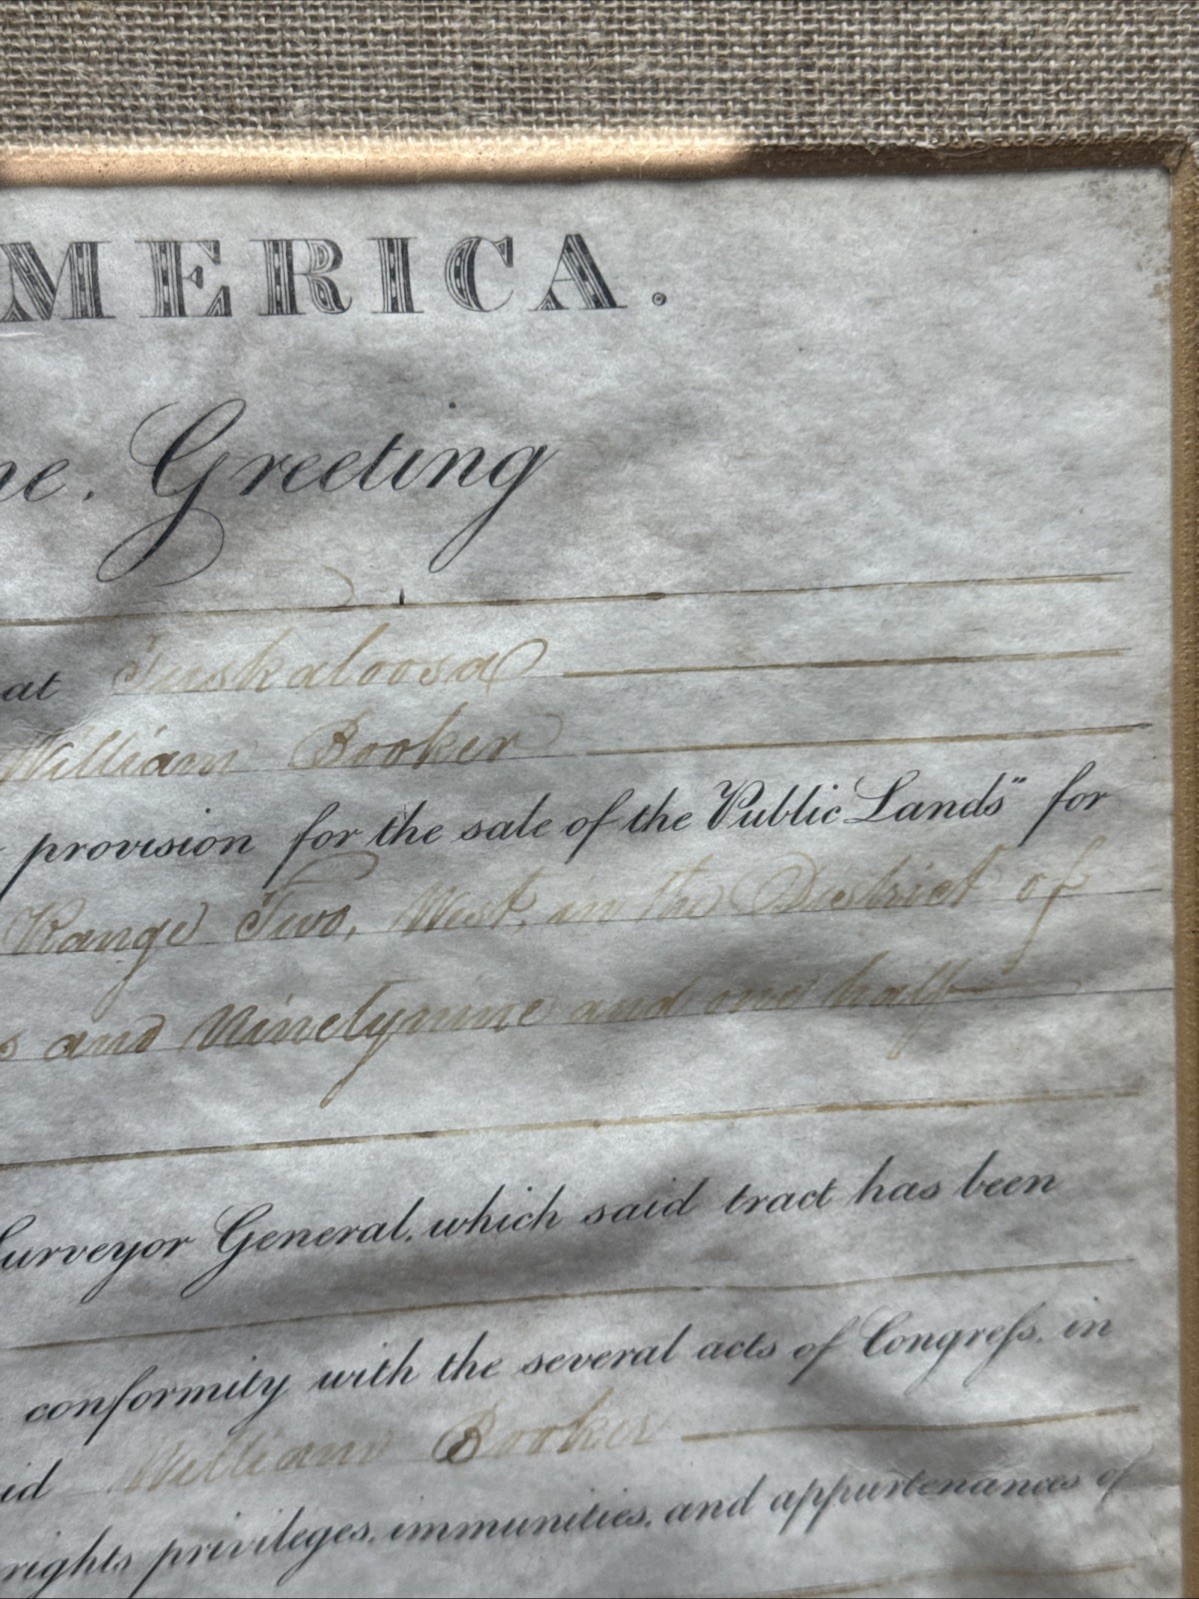 MERICA.
ne, Greeting
at Tuskaloosa
William Booker
provision for the sale of the "Public Lands" for
Range Two, West, in the District of
s and Ninetynine and one half
Surveyor General, which said tract has been
conformity with the several acts of Congreſs, in
id William Booker
rights, privileges, immunities, and appurtenances of